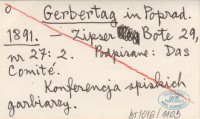 o Gerbertag in Poprad.
1891. — Zipser Bote 29,
nr 27: 2. Podpisane: Das
Comité.
Konferencja spiskich
garbarzy.
BJ/OIG/1103